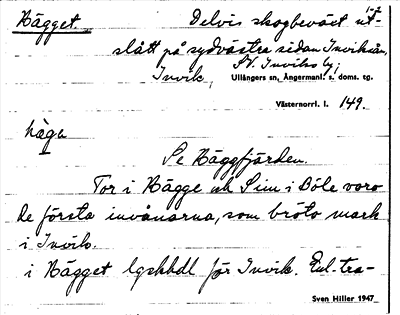 Hägget. Delvis skogbeväxt ut- 1-2
slått på sydvästra sidan Inviksån,
SV. Inviks by;
Invik, Ullångers sn, Ångermanl. s. doms. tg.
Västernorrl. l. 149.
häga
Se Häggfjärden.
Tor i Hägge och Sim i Böle voro
de första invånarna, som bröto mark
i Invik.
i Hägget lgskhdl för Invik. Enl. tra-
Sven Hiller 1947